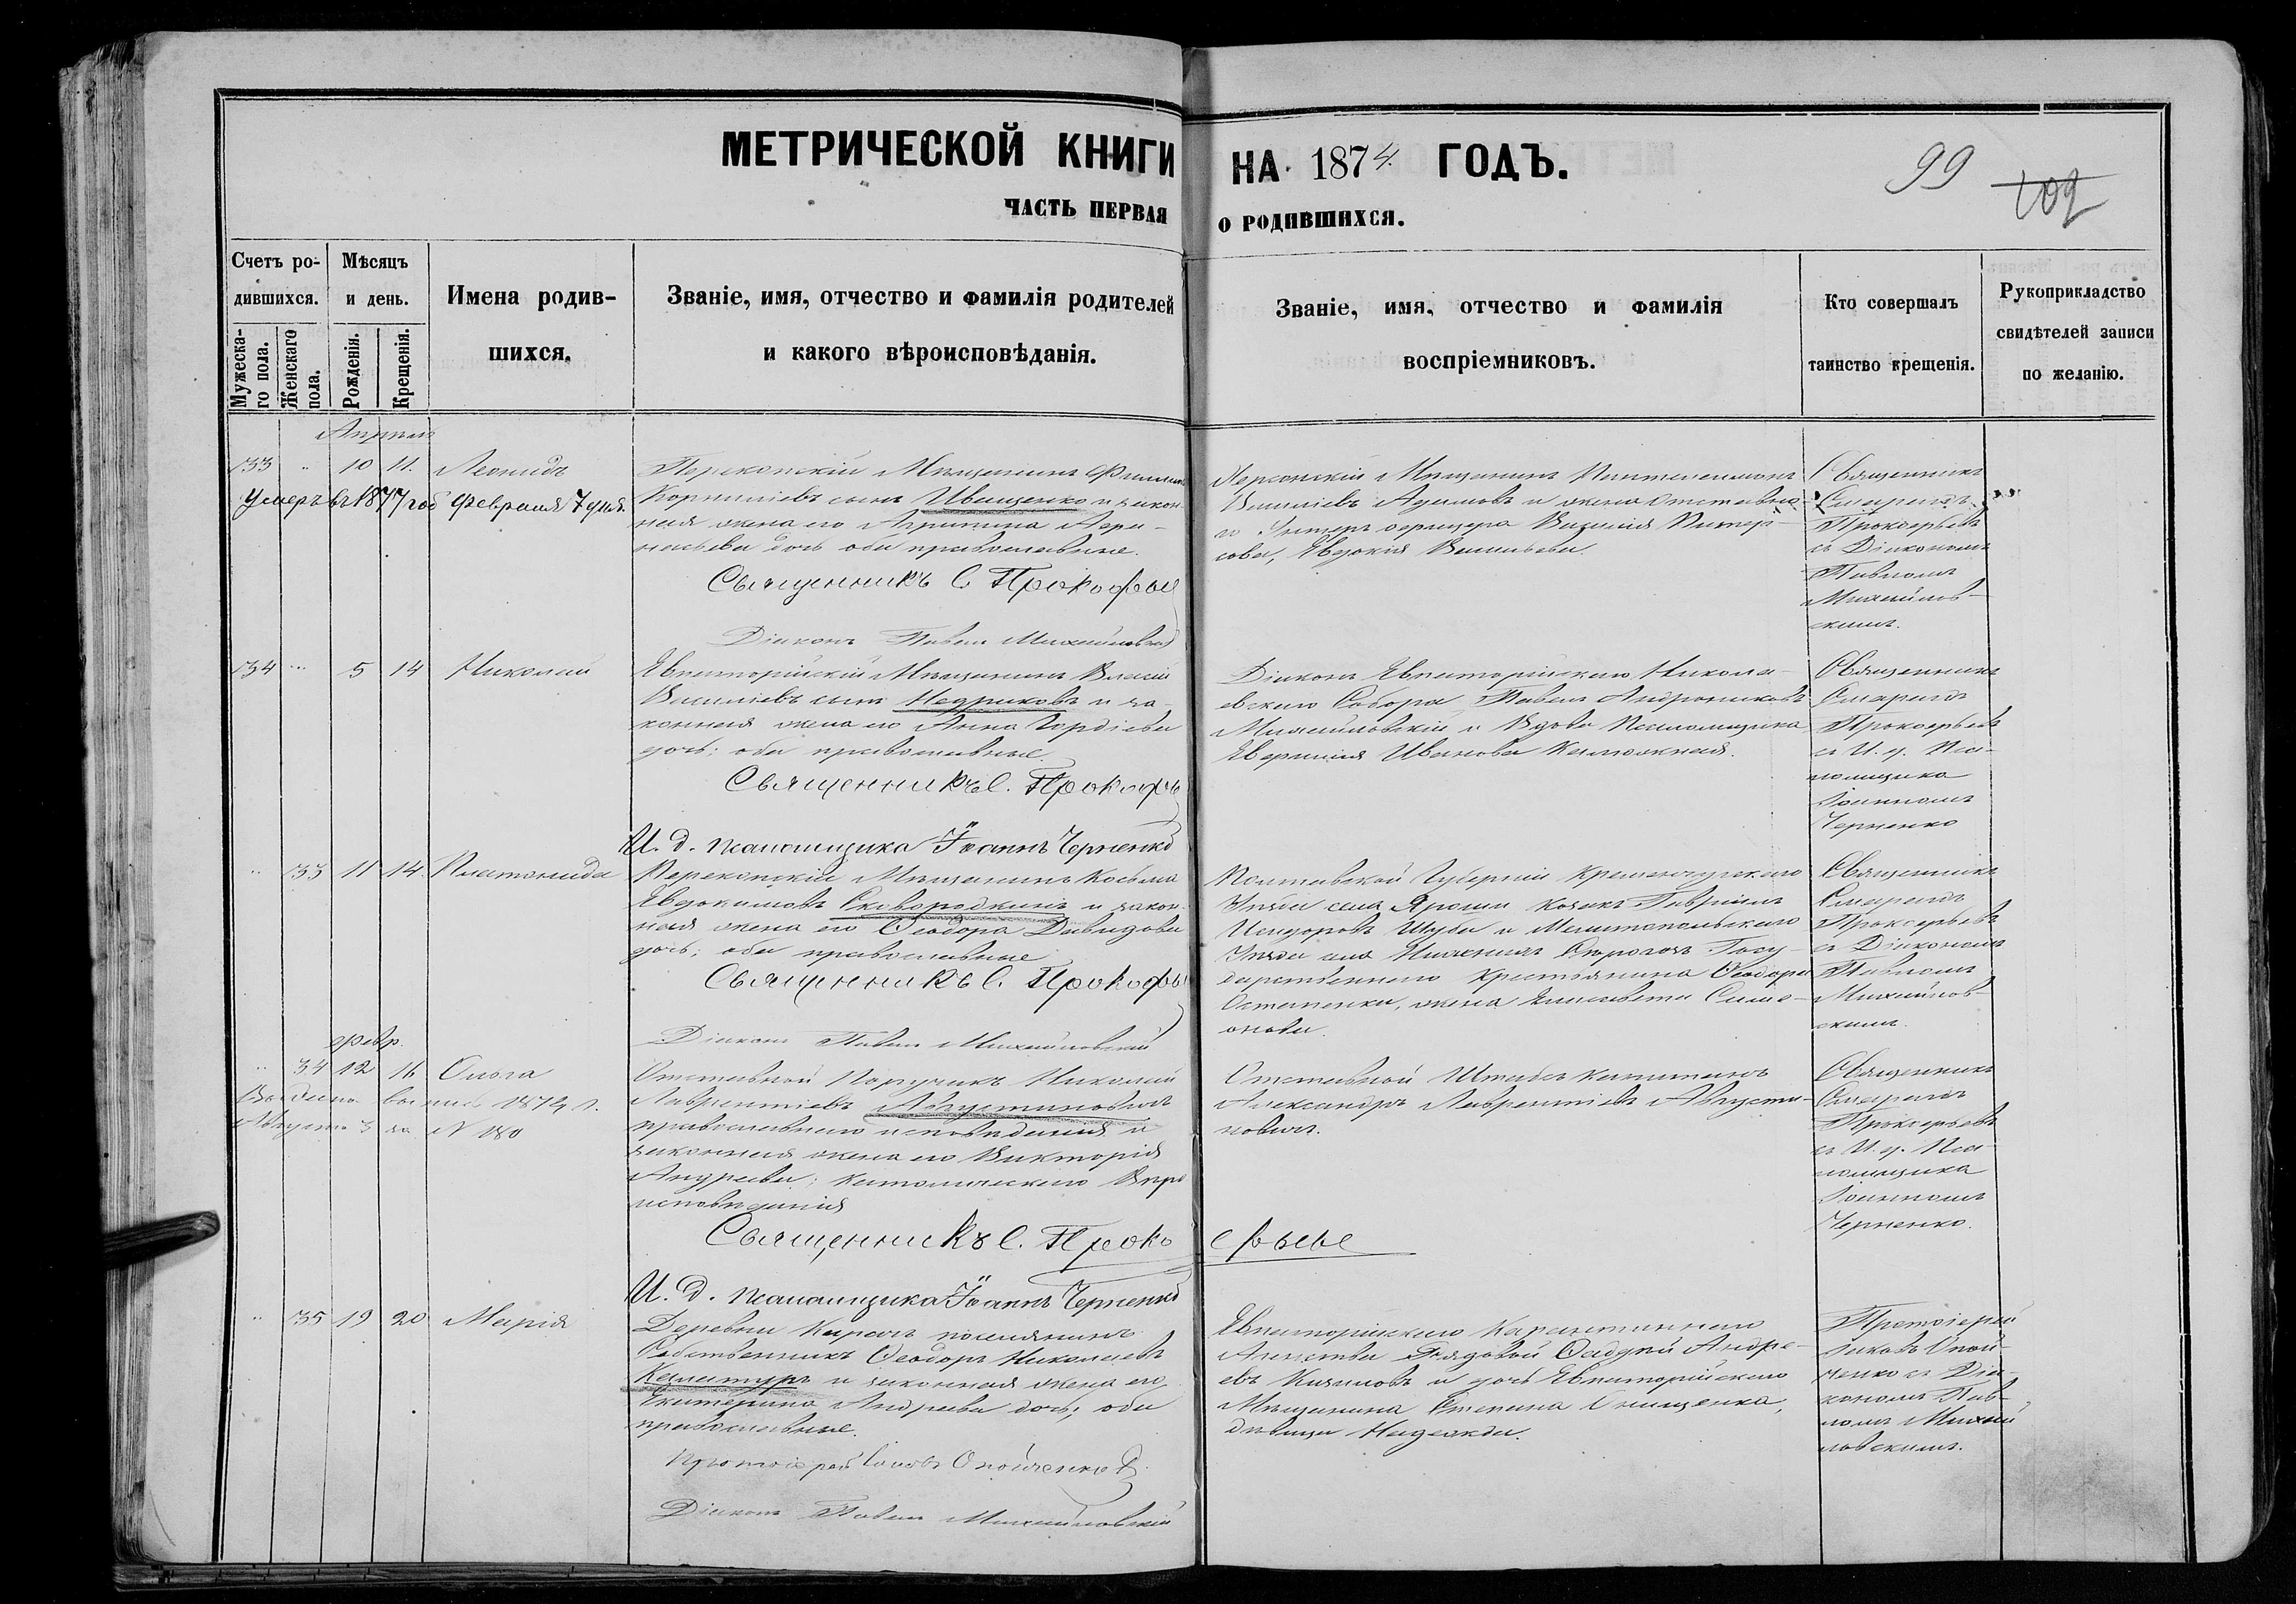 МЕТРИЧЕСКОЙ КНИГИ НА 1874 ГОДЪ.
99
102
ЧАСТЬ ПЕРВАЯ О РОДИВШИХСЯ.
Счетъ ро-
дившихся.
Мужеска-
го пола.
Женскаго
пола.
Мѣсяцъ
и день.
Рожденія.
Крещенія.
Имена родив-
шихся.
Званіе, имя, отчество и фамилія родителей
и какого вѣроисповѣданія.
Званіе, имя, отчество и фамилія
воспріемниковъ.
Кто совершалъ
таинство крещенія.
Рукоприкладство
свидѣтелей записи
по желанію.
Апрѣль
33 " 10 11. Леонидъ
Умеръ въ 1877 год Февраля 7 дня.
Перекопскій Мѣщанинъ Филиппъ
Корниліевъ сынъ Иващенко и закон-
ная жена его Агрипина
дочь оба православные.
Священникъ С Прокофьев
Діаконъ Павелъ Михайловскій
Херсонскій Мѣщанинъ Пантелеимонъ
Василіевъ Адамовъ и жена Отставна-
го Унтеръ офицера Василія
Евдокія Васильева.
Священникъ
Смарагдъ
Прокофьевъ
съ Діакономъ
Павломъ
Михайлов-
скимъ.
34 " 5 14 Николай
Евпаторійскій Мѣщанинъ Власій
Василіевъ сынъ Недриковъ и за-
конная жена его Анна Гордіева
дочь; оба православные.
Священникъ С. Прокофь
И. д. псаломщика Іоаннъ Черненко
Діаконъ Евпаторійскаго Никола-
евскаго Собора Павелъ Андрониковъ
Михайловскій и Вдова Псаломщика
Евфимія Иванова Калюжная.
Священникъ
Смарагдъ
Прокофьевъ
съ И. д. Пса-
ломщика
Іоанномъ
Черненко
" 33 11 14. Платонида
Перекопскій Мѣщанинъ Косьма
Евдокимовъ Сковородкинъ и закон-
ная жена его Ѳеодора Давидова
дочь; оба православные
Священникъ С. Прокофь
Діаконъ Павелъ Михайловскій
Полтавской Губерніи Кременчугскаго
Уѣзда села Яроши козакъ Гавріилъ
Исидоровъ Шуба и Мелитопольскаго
Уѣзда села Нижнихъ Сѣрогозъ Госу-
дарственнаго Крестьянина Ѳеодора
Остапенка, жена Елисавета Симе-
онова.
Священникъ
Смарагдъ
Прокофьевъ
съ Діакономъ
Павломъ
Михайлов-
скимъ.
Февр.
" 34 12 16 Ольга
1874 г.
Августа 3 за N 180
Отставной Поручикъ Николай
Лаврентіевъ Августиновичъ
православнаго исповѣданія и
законная жена его Викторія
Андреева; католическаго Вѣро
исповѣданія
Священникъ С. Прокофьевъ
И. д. псаломщика Іоаннъ Черненко
Отставной Штабсъ капитанъ
Александръ Лаврентіевъ Августи-
новичъ.
Священникъ
Смарагдъ
Прокофьевъ
съ И. д. Пса-
ломщика
Іоанномъ
Черненко.
" 35 19 20 Марія
Деревни Карачъ поселянинъ
Собственникъ Ѳеодоръ Николаевъ
Каламуръ и законная жена его
Екатерина Андреева дочь; оба
православные.
Протоіерей Іаковъ Опойченко
Діаконъ Павелъ Михайловскій
Евпаторійскаго Карантиннаго
Агентства Рядовой Ѳаддей Андре-
евъ и дочь Евпаторійскаго
Мѣщанина Степана Онищенка,
дѣвица Надежда.
Протоіерей
Іаковъ Опой-
ченко съ Діа-
кономъ Пав-
ломъ Михай-
ловскимъ.